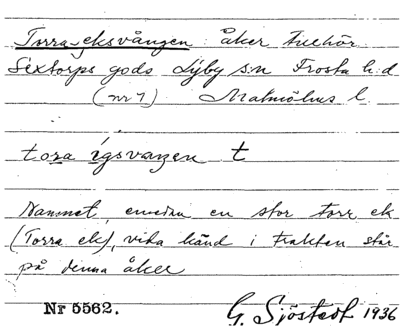 Torra-eksvången: åker tillhör
Sextorps gods Lyby sn Frosta h:d
(nr 7) Malmöhus l.
tora igsvaŋen t
Namnet, emedan en stor torr ek
(Torra ek), vida känd i trakten står
på denna åker
Nr 5562. G. Sjöstedt 1936